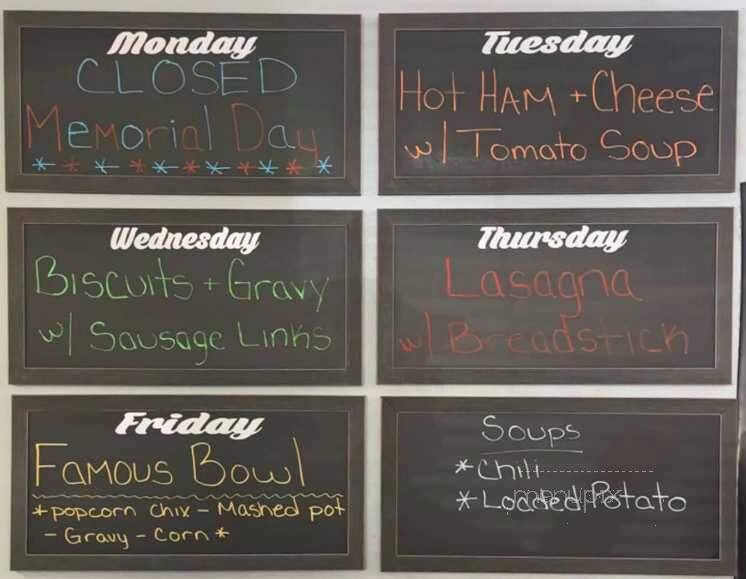 Monday
CLOSED
Memorial Day
Tuesday
Hot HAM + Cheese
w/ Tomato Soup
Wednesday
Biscuits + Gravy
w/ Sausage Links
Thursday
Lasagna
w/ Breadstick
Friday
Famous Bowl
*popcorn chix - Mashed pot
- Gravy - Corn *
Soups
* Chili
* Loaded Potato
menupix